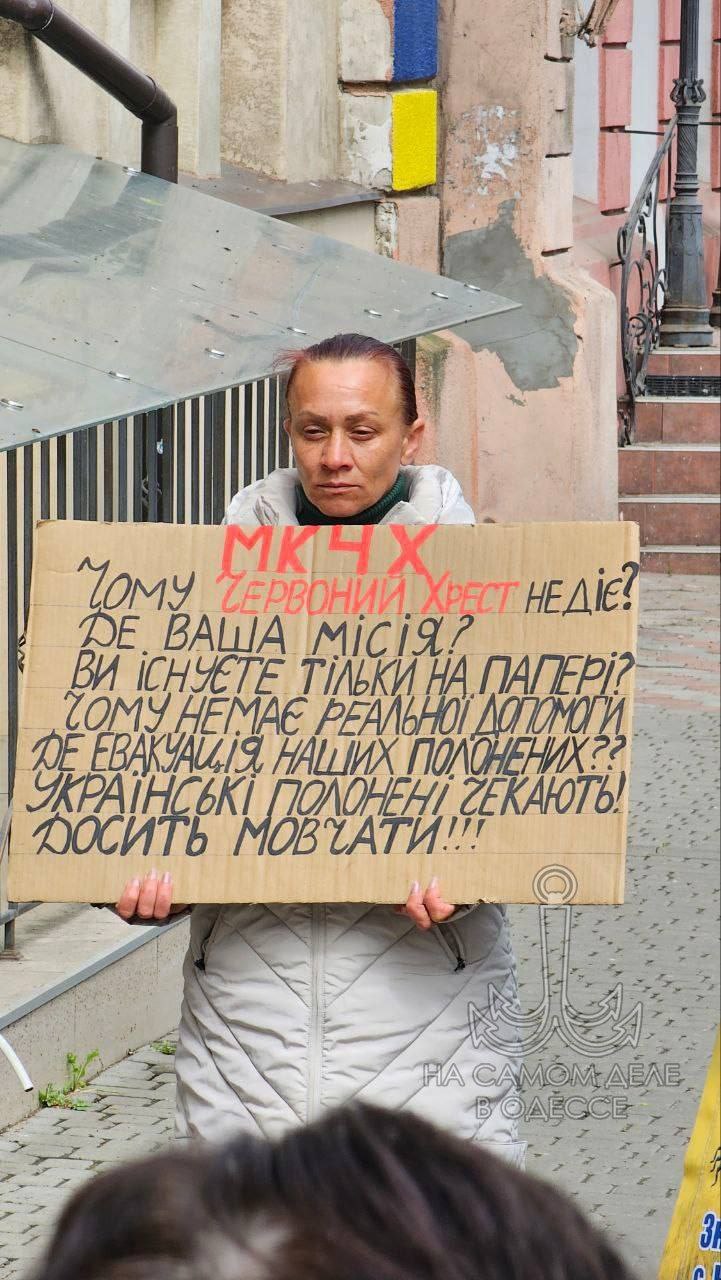 МКЧХ
ЧОМУ ЧЕРВОНИЙ ХРЕСТ НЕДІЄ?
ДЕ ВАША МІСІЯ?
ВИ ІСНУЄТЕ ТІЛЬКИ НА ПАПЕРІ?
ЧОМУ НЕМАЄ РЕАЛЬНОЇ ДОПОМОГИ
ДЕ ЕВАКУАЦІЯ НАШИХ ПОЛОНЕНИХ??
УКРАЇНСЬКІ ПОЛОНЕНІ ЧЕКАЮТЬ!
ДОСИТЬ МОВЧАТИ!!!
НА САМОМ ДЕЛЕ
В ОДЕССЕ